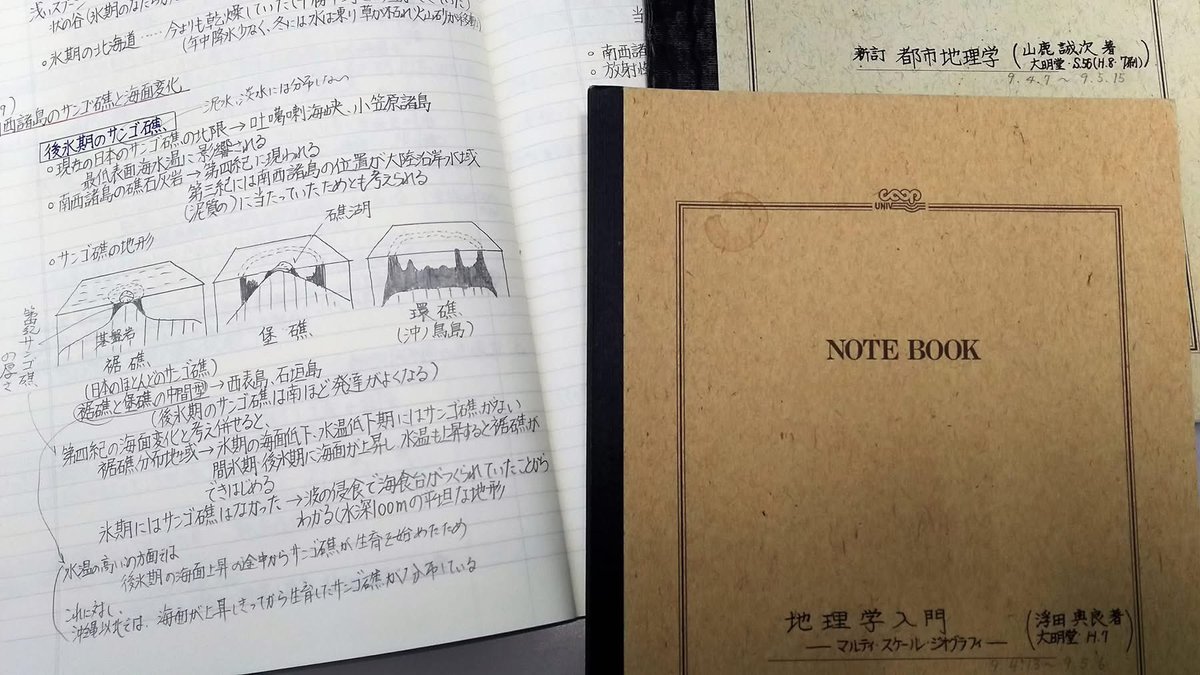 状の谷(氷期のなだらか
氷期の北海道……今よりも乾燥していた
(年中降水少なく、冬には水は凍り草が枯れ火山砂が移動)
9)
西諸島のサンゴ礁と海面変化
泥水、淡水には分布しない
後氷期のサンゴ礁
現在の日本のサンゴ礁の北限→吐噶喇海峡、小笠原諸島
最低表面海水温に影響される
南西諸島の礁石灰岩→第四紀に現われる
第三紀には南西諸島の位置が大陸沿岸水域
(泥質の)に当たっていたためとも考えられる
礁湖
サンゴ礁の地形
基盤岩
裾礁
(日本のほとんどのサンゴ礁)
堡礁
環礁
(沖ノ鳥島)
サンゴ礁の厚さ
裾礁と堡礁の中間型→西表島、石垣島
(後氷期のサンゴ礁は南ほど発達がよくなる)
第四紀の海面変化と考え併せると、
裾礁分布地域→氷期の海面低下、水温低下期にはサンゴ礁がない
間氷期・後氷期に海面が上昇し、水温も上昇すると裾礁が
できはじめる
氷期にはサンゴ礁はなかった→波の侵食で海食台がつくられていたことから
わかる(水深100mの平坦な地形
水温の高い の方面では
後氷期の海面上昇の途中からサンゴ礁が生育を始めたため
これに対し、
沖縄以北では、海面が上昇しきってから生育したサンゴ礁が分布している
当
南西諸
放射
新訂 都市地理学 (山鹿誠次 著
大明堂・S.56(H.8・7刷))
9.4.7〜9.5.15
UNIV COOP
NOTE BOOK
地理学入門
―マルティ・スケール・ジオグラフィ―
(浮田典良 著
大明堂・H.7)
9.4.13〜9.5.6